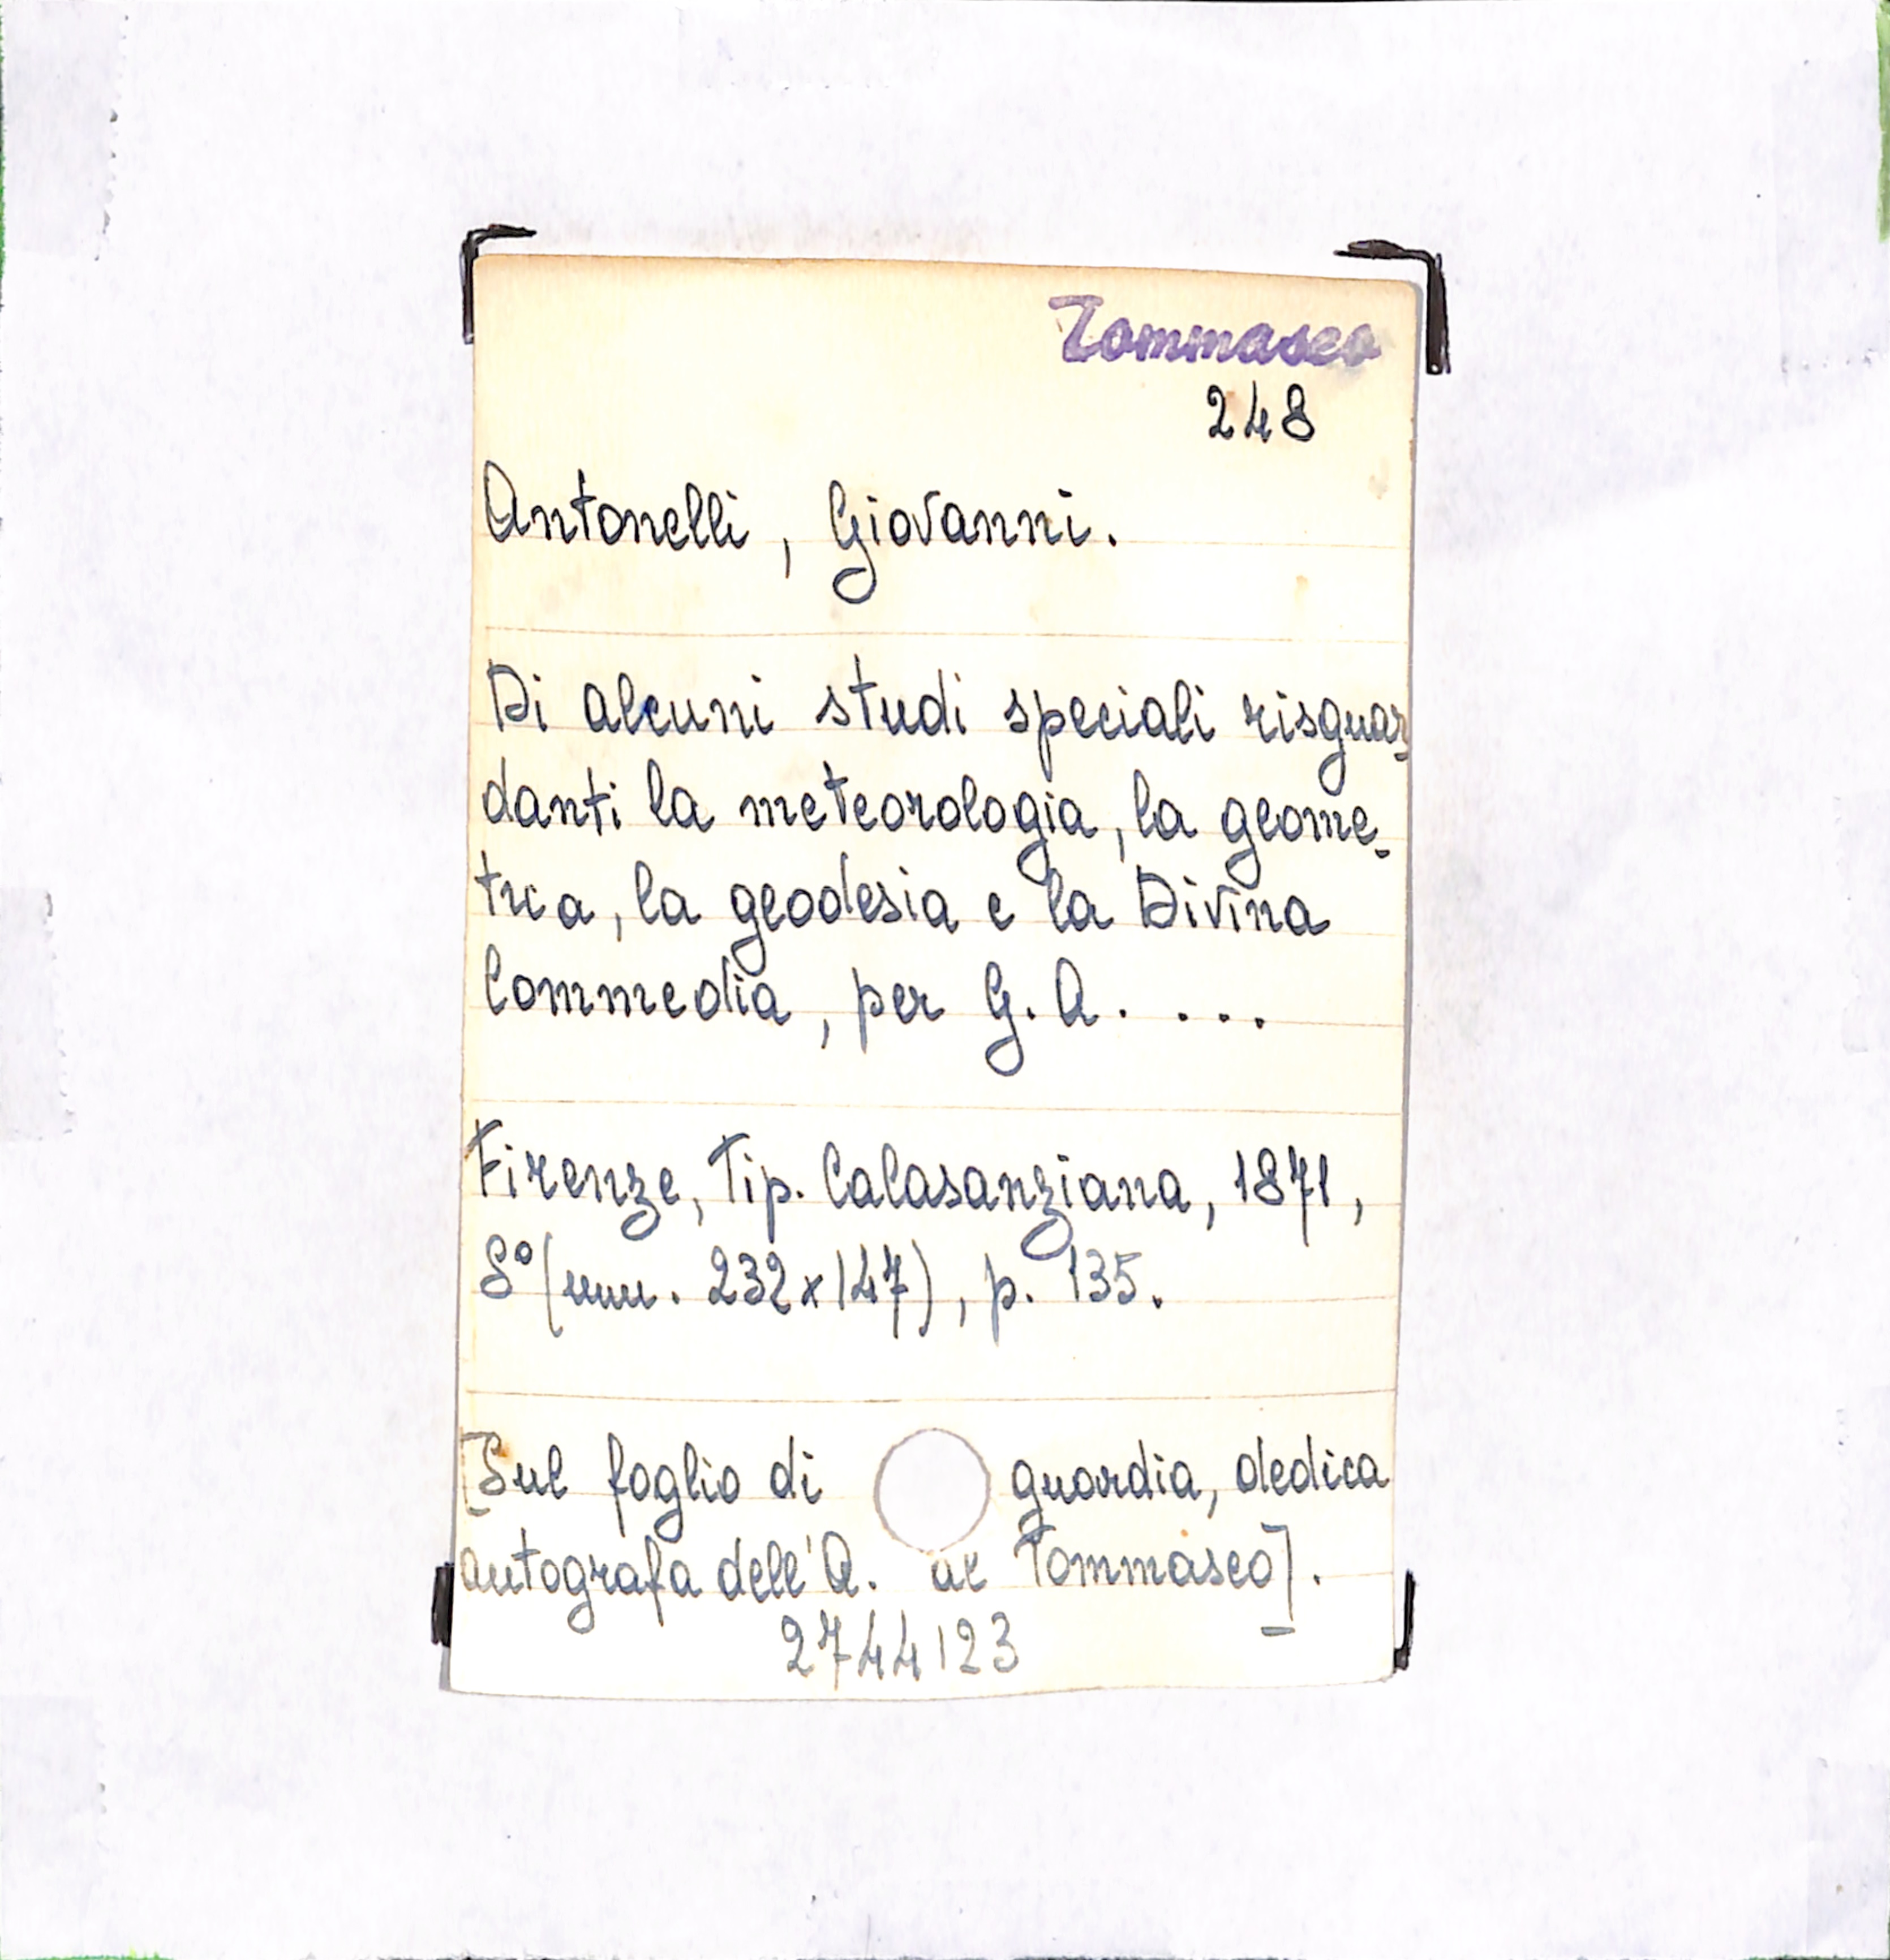 Tommaseo
248
Antonelli, Giovanni.
Di alcuni studi speciali risguar-
danti la meteorologia, la geome-
tria, la geodesia e la Divina
Commedia, per G. A. ...
Firenze, Tip. Calasanziana, 1871,
8° (mm. 232x147), p. 135.
[Sul foglio di guardia, dedica
autografa dell'A. al Tommaseo].
2744123